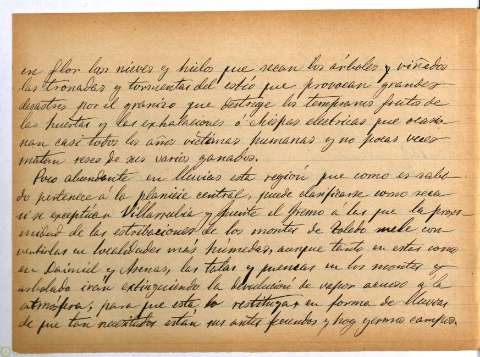 en flor las nieves y hielos que secan los árboles y viñedos
las tronadas y tormentas del estío que provocan grandes
desastres por el granizo que destruye los tempranos frutos de
las huertas y las exhalaciones ó chispas electricas que ocasio
nan casi todos los años victimas humanas y no pocas veces
matan reses de sus varios ganados.
Poco abundante en lluvias esta región que como es sabi
do pertenece á la planicie central, puede clasificarse como seca
si se exceptúan Villarrubia y Fuente el Fresno á las que la proxi
midad de las estribaciones de los montes de Toledo suele con
vertirlas en localidades más húmedas, aunque tanto en estas como
en Daimiel y Arenas, las talas y quemas en los montes y
arbolado iran extinguiendo la devolución de vapor acuoso á la
atmósfera, para que esta lo restituya en forma de lluvias
de que tan necesitados están sus antes fecundos y hoy yermos campos.